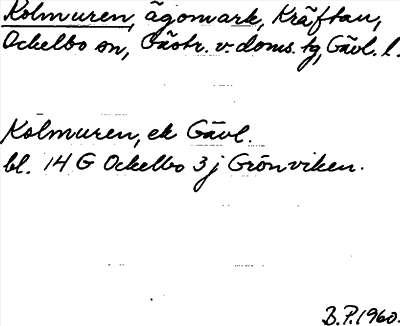 Kolmuren, ägomark, Kräftau,
Ockelbo sn, Gästr. v. doms. tg, Gävl. l.
Kolmuren, ek Gävl.
bl. 14 G Ockelbo 3 j Grönviken.
B.P. 1960.